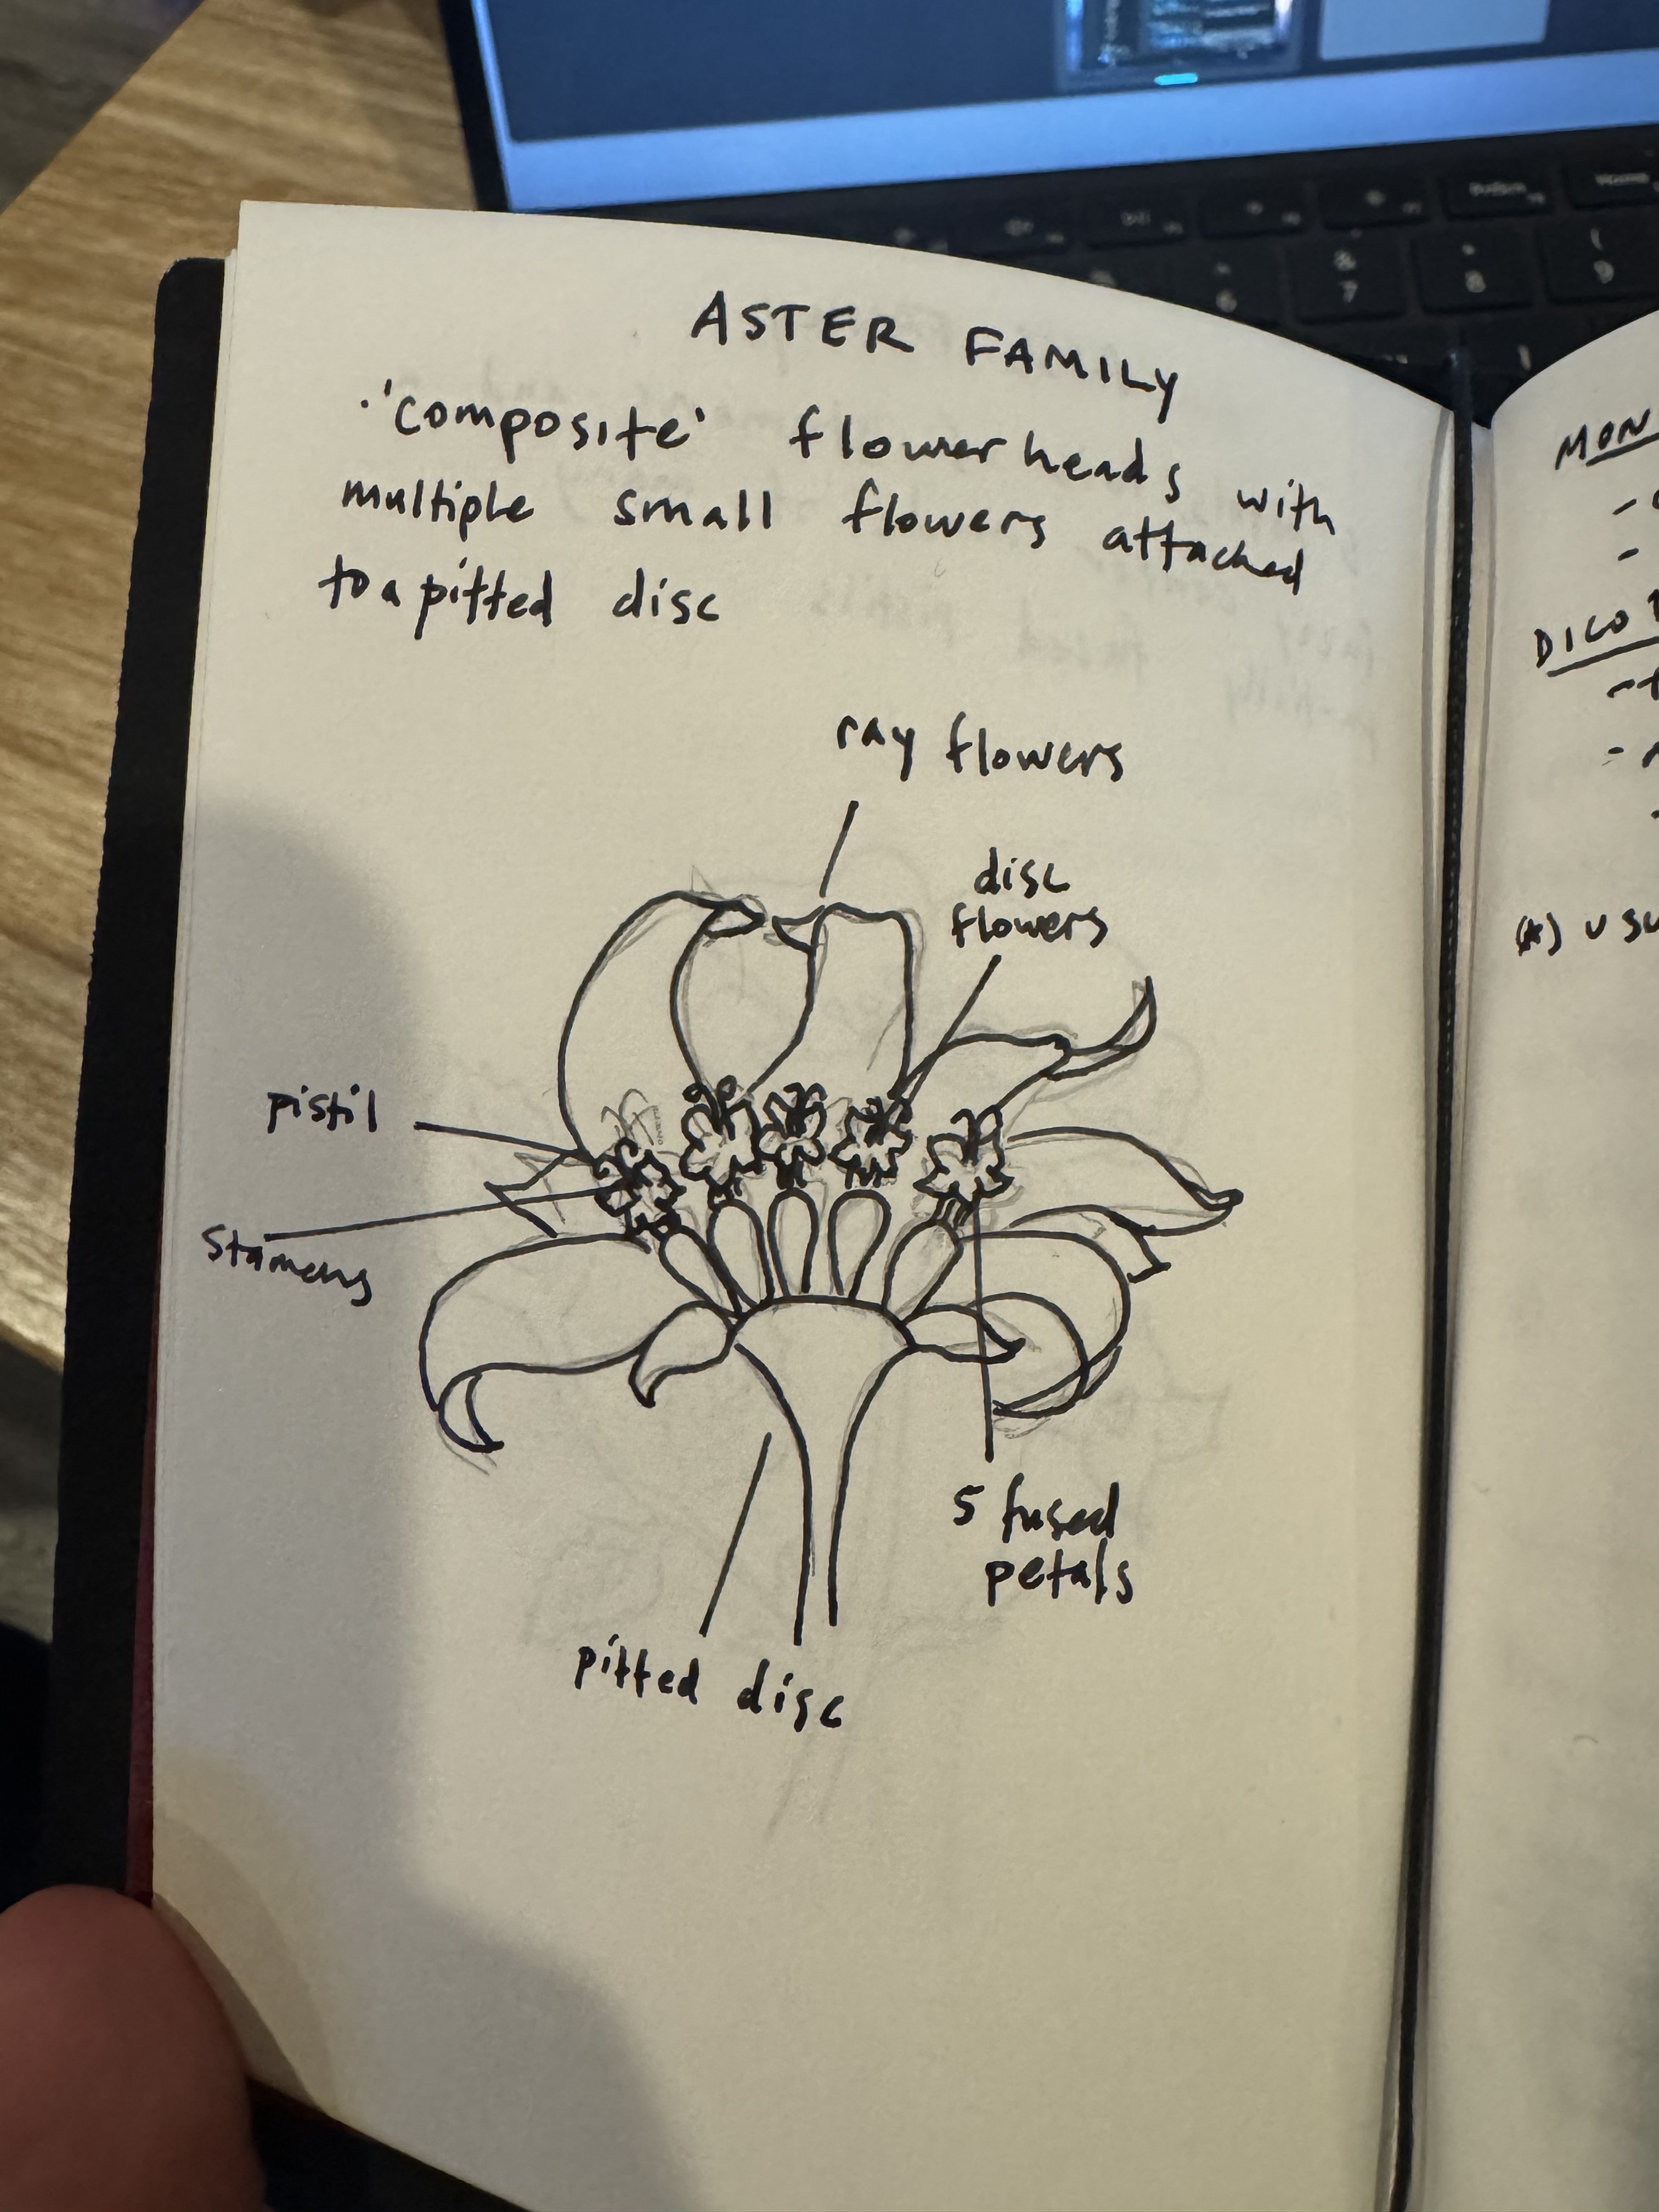 ASTER FAMILY
· 'composite' flower heads with
multiple small flowers attached
to a pitted disc
ray flowers
disc
flowers
pistil
stamens
5 fused
petals
pitted disc
MON
DICO
(*) usu
&
7
*
8
(
9
6
Home